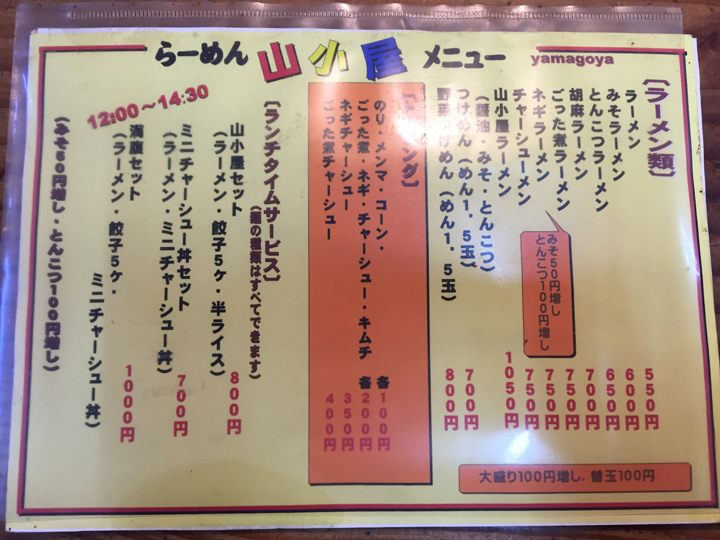 らーめん 山小屋 メニュー yamagoya
〔ラーメン類〕
ラーメン 550円
みそラーメン 600円
とんこつラーメン 650円
胡麻ラーメン 750円
ごった煮ラーメン 750円
ネギラーメン 750円
チャーシューメン 750円
みそ50円増し
とんこつ100円増し
山小屋ラーメン 1050円
(醤油・みそ・とんこつ)
つけめん(めん1.5玉) 700円
野菜つけめん(めん1.5玉) 800円
大盛り100円増し、替玉100円
のり・メンマ・コーン・ 各100円
ごった煮・ネギ・チャーシュー・キムチ 各200円
ネギチャーシュー 350円
ごった煮チャーシュー 400円
〔ランチタイムサービス〕
(麺の種類はすべてできます)
12:00～14:30
山小屋セット
(ラーメン・餃子5ケ・半ライス) 800円
ミニチャーシュー丼セット
(ラーメン・ミニチャーシュー丼) 700円
満腹セット
(ラーメン・餃子5ケ・
ミニチャーシュー丼) 1000円
(みそ50円増し・とんこつ100円増し)